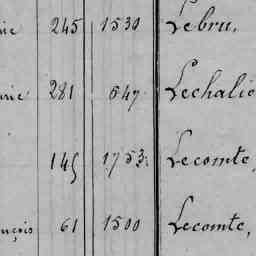 245 1530 Lebru,
281 647 Lechalie
145 1753. Lecomte,
nçois 61 1500 Lecomte,